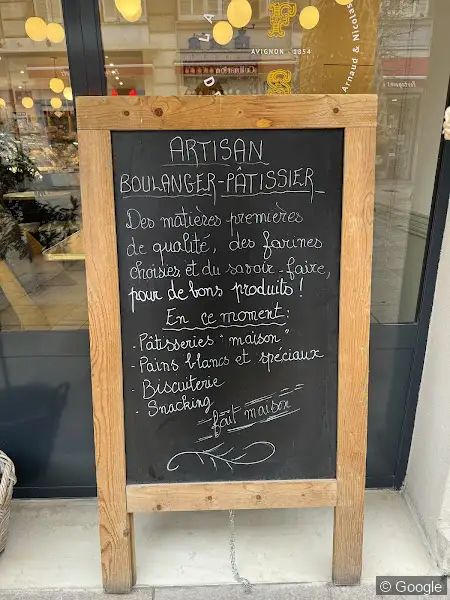 AVIGNON - 1854
Arnaud & Nicolas
ARTISAN
BOULANGER-PÂTISSIER
Des matières premières
de qualité, des farines
choisies et du savoir-faire,
pour de bons produits !
En ce moment :
- Pâtisseries "maison"
- Pains blancs et spéciaux
- Biscuiterie
- Snacking
fait maison
© Google